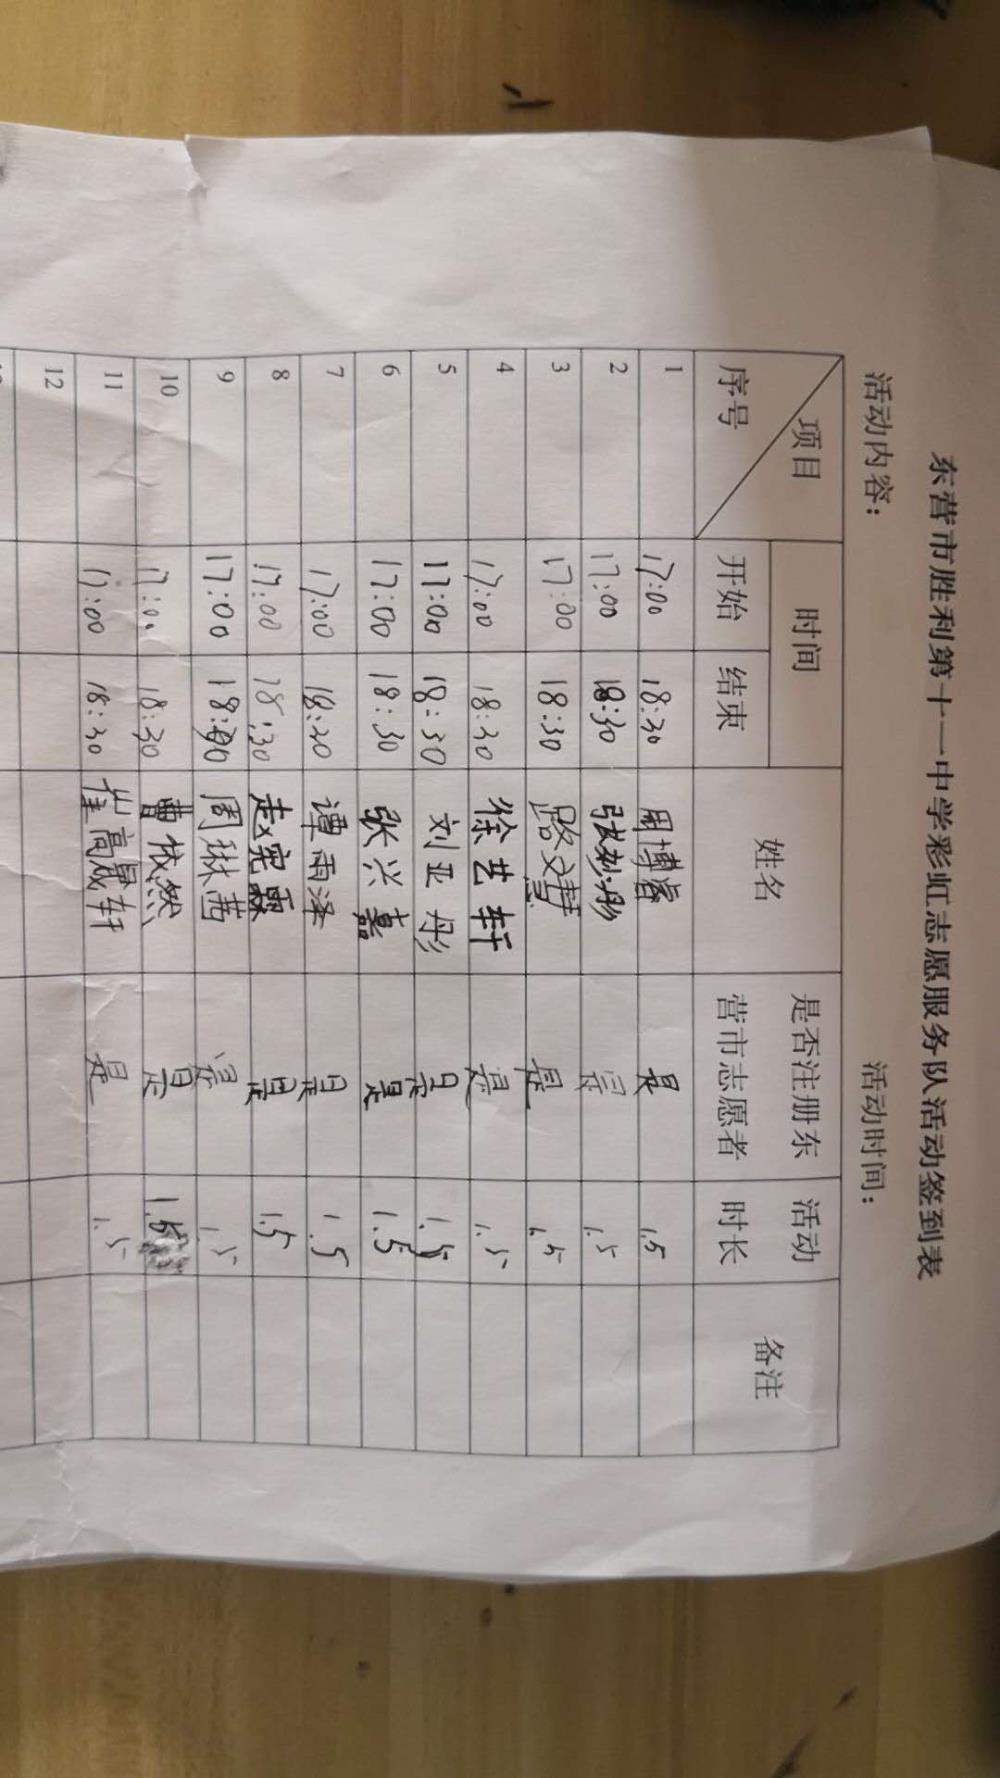 东营市胜利第十一中学彩虹志愿服务队活动签到表
活动内容： 活动时间：
项目 序号 时间 开始 结束 姓名 是否注册东营市志愿者 活动时长 备注
1 17:00 18:30 周博睿 是 1.5
2 17:00 18:30 张妙彤 是 1.5
3 17:00 18:30 路 是 1.5
4 17:00 18:30 徐艺轩 是 1.5
5 17:00 18:30 刘亚彤 是 1.5
6 17:00 18:30 张兴嘉 是 1.5
7 17:00 18:30 谭雨泽 是 1.5
8 17:00 18:30 赵宪霖 是 1.5
9 17:00 18:30 周琳茜 是 1.5
10 17:00 18:30 曹依然 是 1.5
11 17:00 18:30 崔高晟轩 是 1.5
12